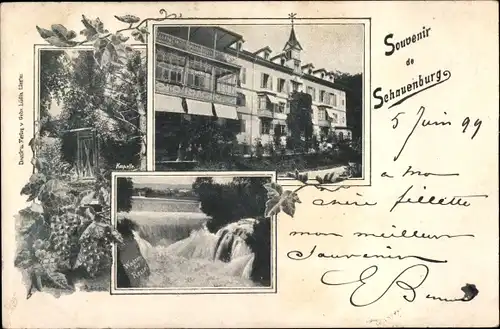 Souvenir
de
Schauenburg
5 Juin 99
à ma
chère fillette
mon meilleur
souvenir
E
Kapelle.
Druck u. Verlag v. Gebr. Lüdin, Liestal.